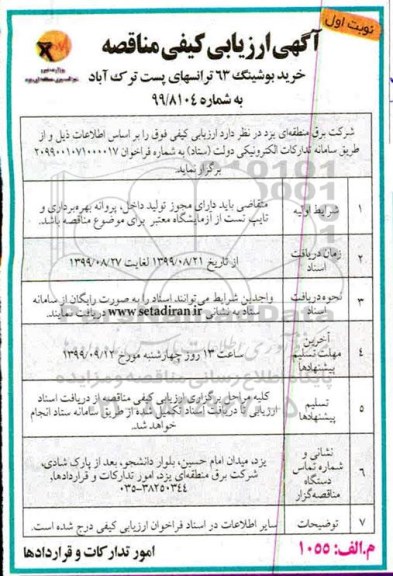 نوبت اول
آگهی ارزیابی کیفی مناقصه
خرید بوشینگ ۶۳ ترانسهای پست ترک آباد
به شماره ۹۹/۸۱۰۴
شرکت برق منطقه‌ای یزد در نظر دارد ارزیابی کیفی فوق را بر اساس اطلاعات ذیل و از
طریق سامانه تدارکات الکترونیکی دولت (ستاد) به شماره فراخوان ۲۰۹۹۰۰۱۰۷۱۰۰۰۰۱۷
برگزار نماید.
۱ شرایط اولیه
متقاضی باید دارای مجوز تولید داخل، پروانه بهره‌برداری و
تایپ تست از آزمایشگاه معتبر برای موضوع مناقصه باشد.
۲ زمان دریافت
اسناد
از تاریخ ۱۳۹۹/۰۸/۲۱ لغایت ۱۳۹۹/۰۸/۲۷
۳ نحوه دریافت
اسناد
واجدین شرایط می‌توانند اسناد را به صورت رایگان از سامانه
ستاد به نشانی www.setadiran.ir دریافت نمایند.
۴ آخرین
مهلت تسلیم
پیشنهادها
ساعت ۱۳ روز چهارشنبه مورخ ۱۳۹۹/۰۹/۱۲
۵ تسلیم
پیشنهادها
کلیه مراحل برگزاری ارزیابی کیفی مناقصه از دریافت اسناد
ارزیابی تا دریافت اسناد تکمیل شده از طریق سامانه ستاد انجام
خواهد شد.
۶ نشانی و
شماره تماس
دستگاه
مناقصه‌گزار
یزد، میدان امام حسین، بلوار دانشجو، بعد از پارک شادی،
شرکت برق منطقه‌ای یزد، امور تدارکات و قراردادها،
۰۳۵-۳۸۲۵۰۳۴۴
۷ توضیحات
سایر اطلاعات در اسناد فراخوان ارزیابی کیفی درج شده است.
م.الف: ۱۰۵۵
امور تدارکات و قراردادها